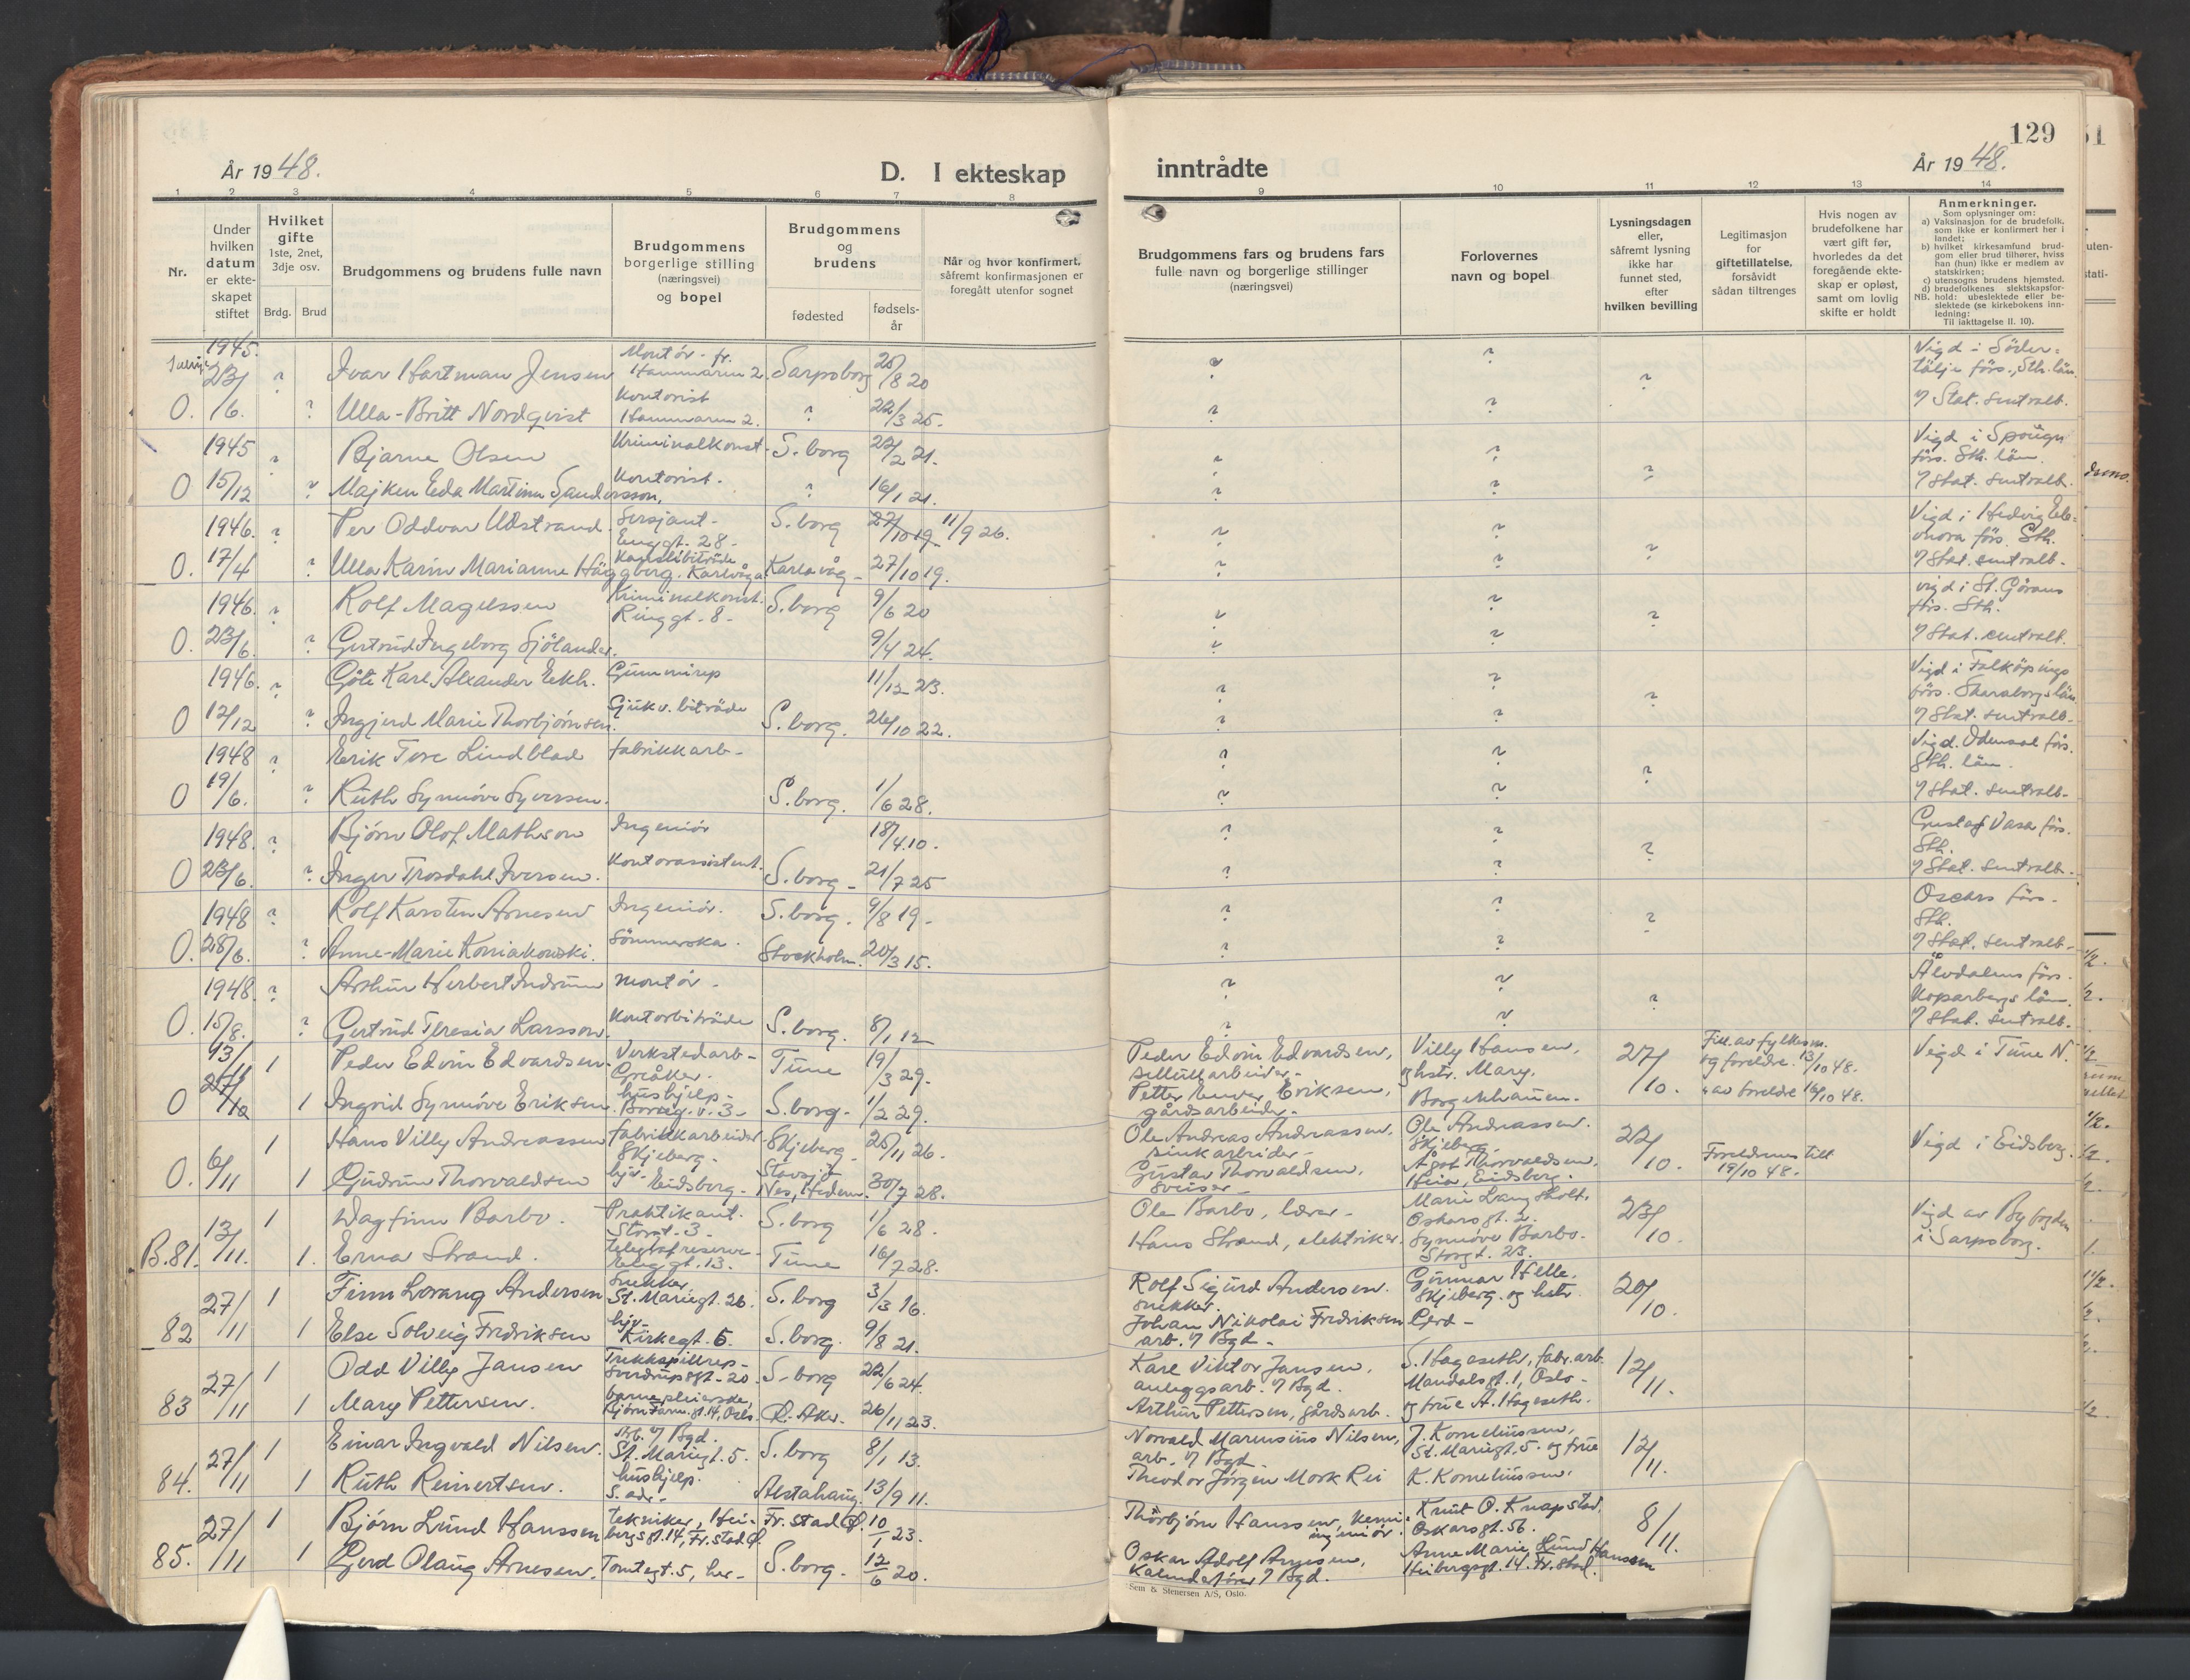 129
År 1948.
D. I ekteskap
inntrådte
År 1948.
1 2 3 4 5 6 7 8 9 10 11 12 13 14
Nr.
Under hvilken datum er ekteskapet stiftet
Hvilket gifte 1ste, 2net, 3dje osv.
Brdg. Brud
Brudgommens og brudens fulle navn
Brudgommens borgerlige stilling (næringsvei) og bopel
Brudgommens og brudens
fødested
fødsels-år
Når og hvor konfirmert, såfremt konfirmasjonen er foregått utenfor sognet
Brudgommens fars og brudens fars fulle navn og borgerlige stillinger (næringsvei)
Forlovernes navn og bopel
Lysningsdagen eller, såfremt lysning ikke har funnet sted, efter hvilken bevilling
Legitimasjon for giftetillatelse, forsåvidt sådan tiltrenges
Hvis nogen av brudefolkene har vært gift før, hvorledes da det foregående ekteskap er opløst, samt om lovlig skifte er holdt
Anmerkninger.
Som oplysninger om:
a) Vaksinasjon for de brudefolk, som ikke er konfirmert her i landet;
b) hvilket kirkesamfund brudgom eller brud tilhører, hviss han (hun) ikke er medlem av statskirken;
c) utensogns brudens hjemsted.
d) brudefolkenes slektskapsforhold: ubeslektede eller beslektede (se kirkebokens innledning:
NB. Til iakttagelse II. 10).
1945. 23/ ? Ivar Hartman Jensen Montør - fr. Hammaren 2. Sarpsborg 25/8 20 ? ? ? Vigd i Söder-tälje förs., Sth. län
O. /6. ? Ulla-Britt Nordqvist Kontorist Hammaren 2. ? 22/3 25. ? ? 7 Stat. sentralb.
1945 ? Bjarne Olsen Kriminalkonst. S. borg 22/2 21. ? ? ? Vigd i förs. Sth. län.
O 15/12 ? Majken Eda Martina Sandersson. Kontorist. ? 16/1 21. ? ? 7 Stat. sentralb.
1946. ? Per Oddvar Udstrand. Sersjant - Enggt. 28 - S. borg 27/10 19. 11/9 26. ? ? ? Vigd i Hedvig Ele-onora förs. Sth.
O. 17/4 ? Ulla Karin Marianne Häggberg. Kanslibiträde Karlavåg - 27/10 19. ? ? 7 Stat. sentralb.
1946. ? Rolf Magelssen Kriminalkonst. Ringgt. 8 - S. borg 9/6 20 ? ? ? vigd i St. Görans förs. Sth.
O. 23/6. ? Gertrud Ingeborg Sjölander. 9/4 24. ? ? 7 Stat. sentralb.
1946. ? Göte Karl Alexander Eckh. Gummirep 11/12 23. ? ? ? Vigd i Falköpings förs. Skaraborgs län
O 12/12 ? Ingjerd Marie Thorbjørnsen. Sjukv. biträde S. borg. 26/10 22. ? ? 7 Stat. sentralb.
1948 ? Erik Tore Lindblad fabrikkarb - ? ? ? Vigd. Odensal förs. Sth. län.
O 19/6. ? Ruth Synnøve Syversen. S. borg. 1/6 28. ? ? 7 Stat. sentralb.
1948. ? Bjørn Olof Mathson Ingeniör 18/4 10. ? ? ? Gustaf Vasa förs. Sth.
O 23/6. ? Inger Trosdahl Iversen. Kontorassistent. S. borg - 21/7 25 ? ? 7 Stat. sentralb.
1948 ? Rolf Karsten Arnesen Ingeniör. S. borg. 9/8 19 - ? ? ? Oscars förs. Sth.
O. 28/6. ? Anne-Marie Koniakowski. Sömmerska. Stockholm. 20/3 15. ? ? 7 Stat. sentralb.
1948. ? Arthur Herbert Montør - ? ? ? Älvdalens förs. Koparbergs län.
O. 15/8. ? Gertrud Teresia Larsson. Kontorbiträde S. borg. 8/1 12 ? ? 7 Stat. sentralb.
13/11 1 Peder Edvin Edvardsen. Verkstedarb - Greåker. Tune 19/3 29. Peder Edvin Edvardsen, sellulloarbeider - Villy Hansen, og hstr. Mary. 27/10. Till. av fylkesm. og foreldre. 13/10 48. Vigd i Tune N.
O 27/10 1 Ingrid Synnøve Eriksen. hushjelp - Borreg. v. 3 - S. borg - 1/2 29. Petter Enver Eriksen, gårdsarbeider - Borgenhaugen. " av foreldre 16/10 48.
1 Hans Villy Andreassen fabrikkarbeider Skjeberg. Skjeberg - 25/11 26. Ole Andreas Andreassen, sinkarbeider - Ole Andreassen. Skjeberg 22/10. Foreldrenes till. 19/10 48. Vigd i Eidsberg.
O. 6/11 1 Gudrun Thorvaldsen hjv - Eidsberg - Stavsjø Nes, Hedem. 30/7 28. Gustav Thorvaldsen, sveiser - Agot Thorvaldsen. Heia, Eidsberg.
13/ 1 Dagfinn Barbo. Praktikant. Storgt. 3 - S. borg 1/6 28. Ole Barbo, lærer - Marie Langsholt. Oskarsgt. 2. 23/10. Vigd av Byfogden i Sarpsborg.
B. 81. 11. 1. Erna Strand. telegrafreserve - Enggt. 13. Tune 16/7 28. Hans Strand, elektriker. Synnøve Barbo. Storgt. 23.
27/ 1 Finn Lorang Andersen Snekker St. Mariegt. 26. S. borg 3/3 16. Rolf Sigurd Andersen. snekker. Gunnar Helle, Skjeberg. og hstr. 20/10.
82 11 1 Else Solveig Fredriksen hjv - Kirkegt. 5. S. borg. 9/8 21. Johan Nikolai Fredriksen arb. 7 Bgd - Gerd -
27/ 1 Odd Villy Jansen Trekkspillrep - Sverdrupsgt - 20. S. borg 22/6 24. Karl Viktor Jansen, anleggsarb. 7 Bgd. S. Hageseth, fabr. arb. Mandalsgt. 1, Oslo - 12/11.
83 11 1 Mary Pettersen. barnepleierske, Bjørn Farm. gt. 14, Oslo. Ø. Aker. 26/11 23. Arthur Pettersen, gårdsarb. og frue A. Hageseth.
27/ 1 Einar Ingvald Nilsen. Arb. 7 Bgd. St. Mariegt. 5. S. borg 8/1 13. Norvald Marensius Nilsen, arb. 7 Bgd J. Korneliussen, St. Mariegt. 5. og frue 12/11.
84. 11 1 Ruth Reinertsen. hushjelp. S. adr. Alstahaug. 13/9 11. Theodor Jørgen Mork Rei K. Korneliussen.
27/ 1 Bjørn Lund Hanssen tekniker, Hei-bergsgt. 14, Fr. stad Ø. Fr. stad Ø. 10/1 23. Thorbjørn Hanssen, kemi-ingeniør. Knut O. Knapstad, Oskarsgt. 56. 8/11.
85. 11 1 Gerd Olaug Arnesen. Tomtegt. 5, her - S. borg - 12/6 20. Oskar Adolf Arnesen, Kalanderfører 7 Bgd. Anne Marie Lund Hanssen Heibergsgt. 14. Fr. stad.
Sem & Stenersen A/S, Oslo.